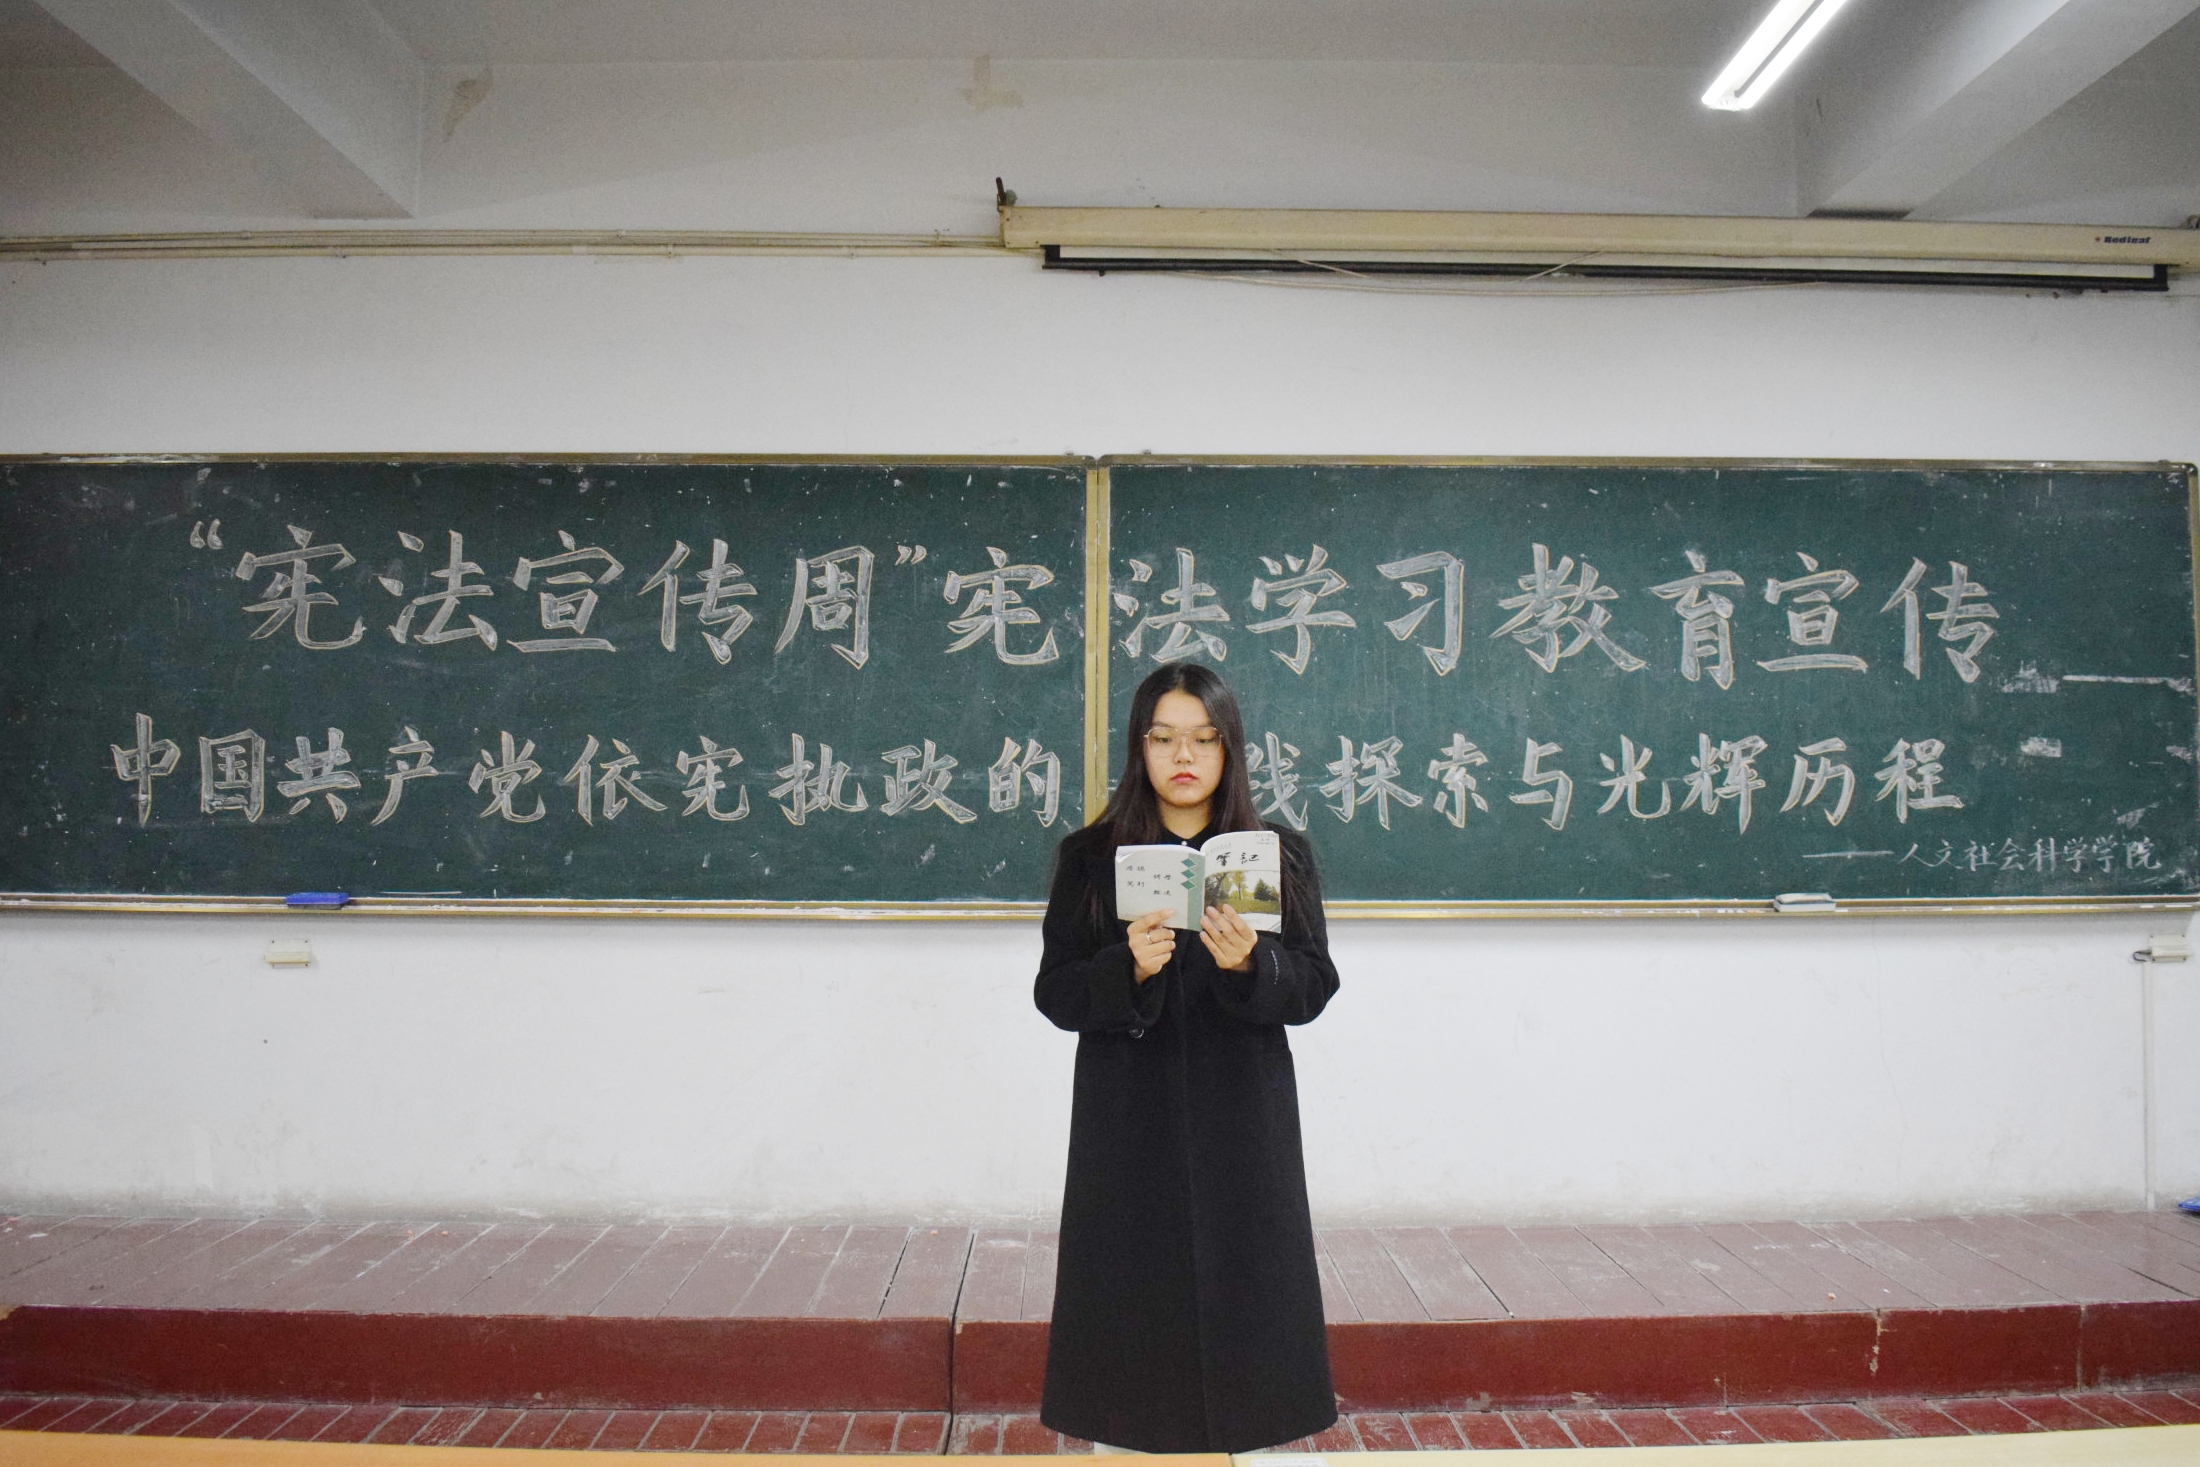 Redleaf
“宪法宣传周”宪法学习教育宣传
中国共产党依宪执政的 践探索与光辉历程
——人文社会科学学院
笔记